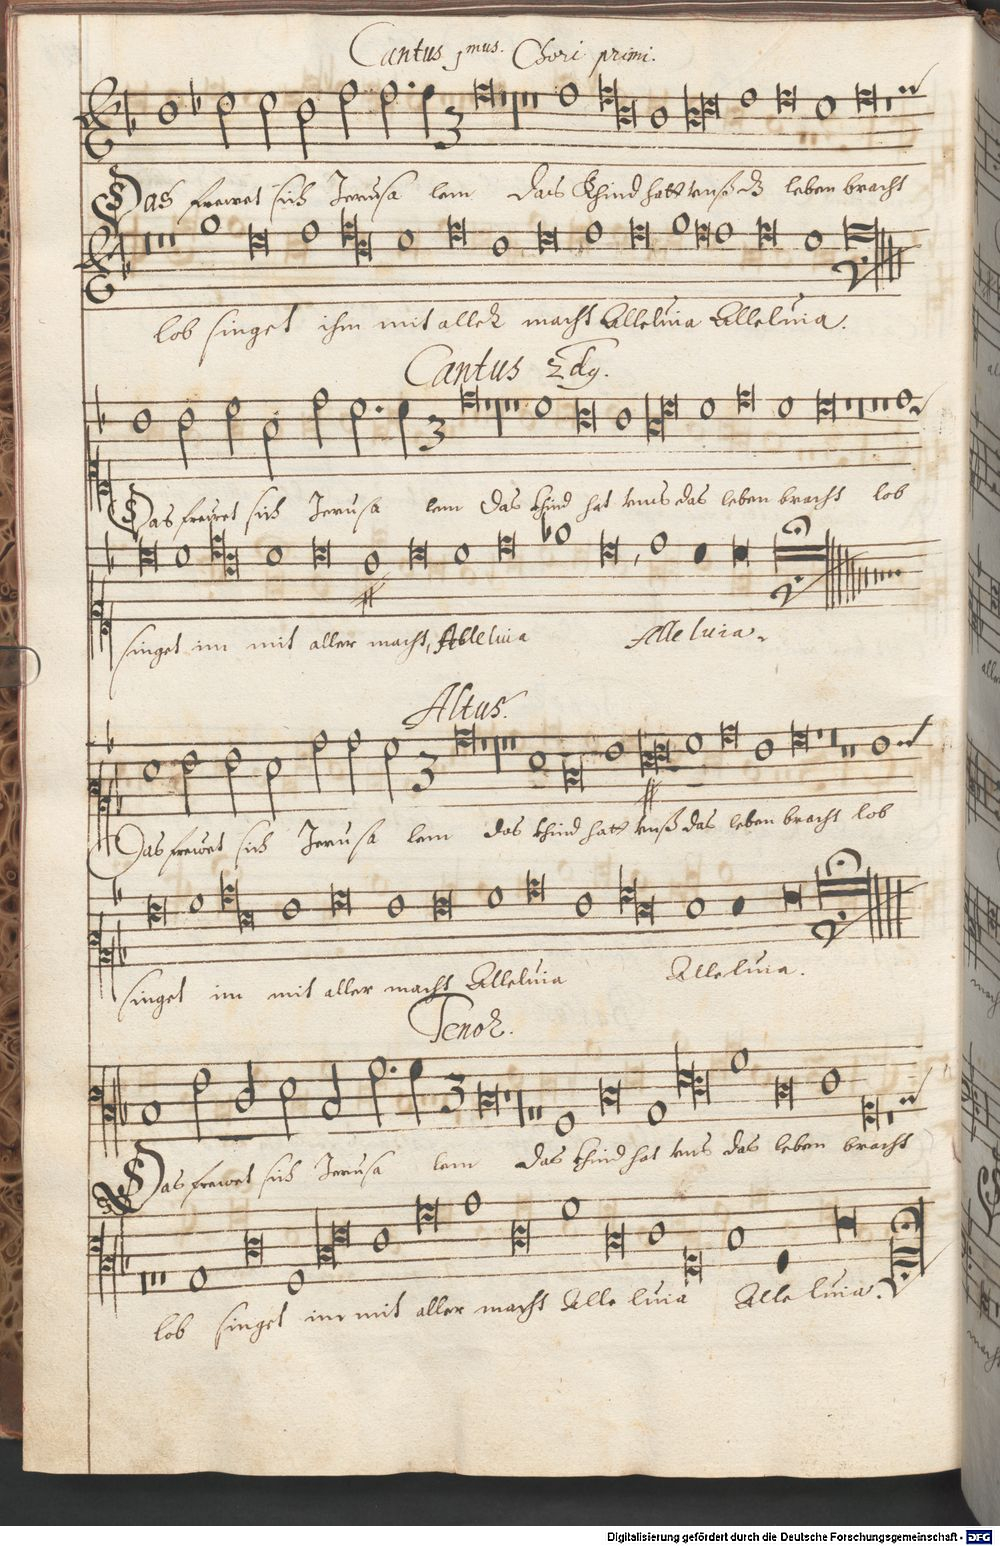 Cantus 1mus. Chori primi.
Das frewet sich Jerusa lem das Khind hatt unß dz leben bracht
lob singet ihm mit aller macht Alleluia Alleluia.
Cantus 2dg.
Das frewet sich Jerusa lem das khind hat unns das leben bracht lob
singet im mit aller macht, Alleluia Alleluia.
Altus.
Das frewet sich Jerusa lem das khind hatt unß das leben bracht lob
singet im mit aller macht Alleluia Alleluia.
Tenor.
Das frewet sich Jerusa lem das khind hat uns das leben bracht
lob singet im mit aller macht Alle luia Alle luia.
Digitalisierung gefördert durch die Deutsche Forschungsgemeinschaft - DFG